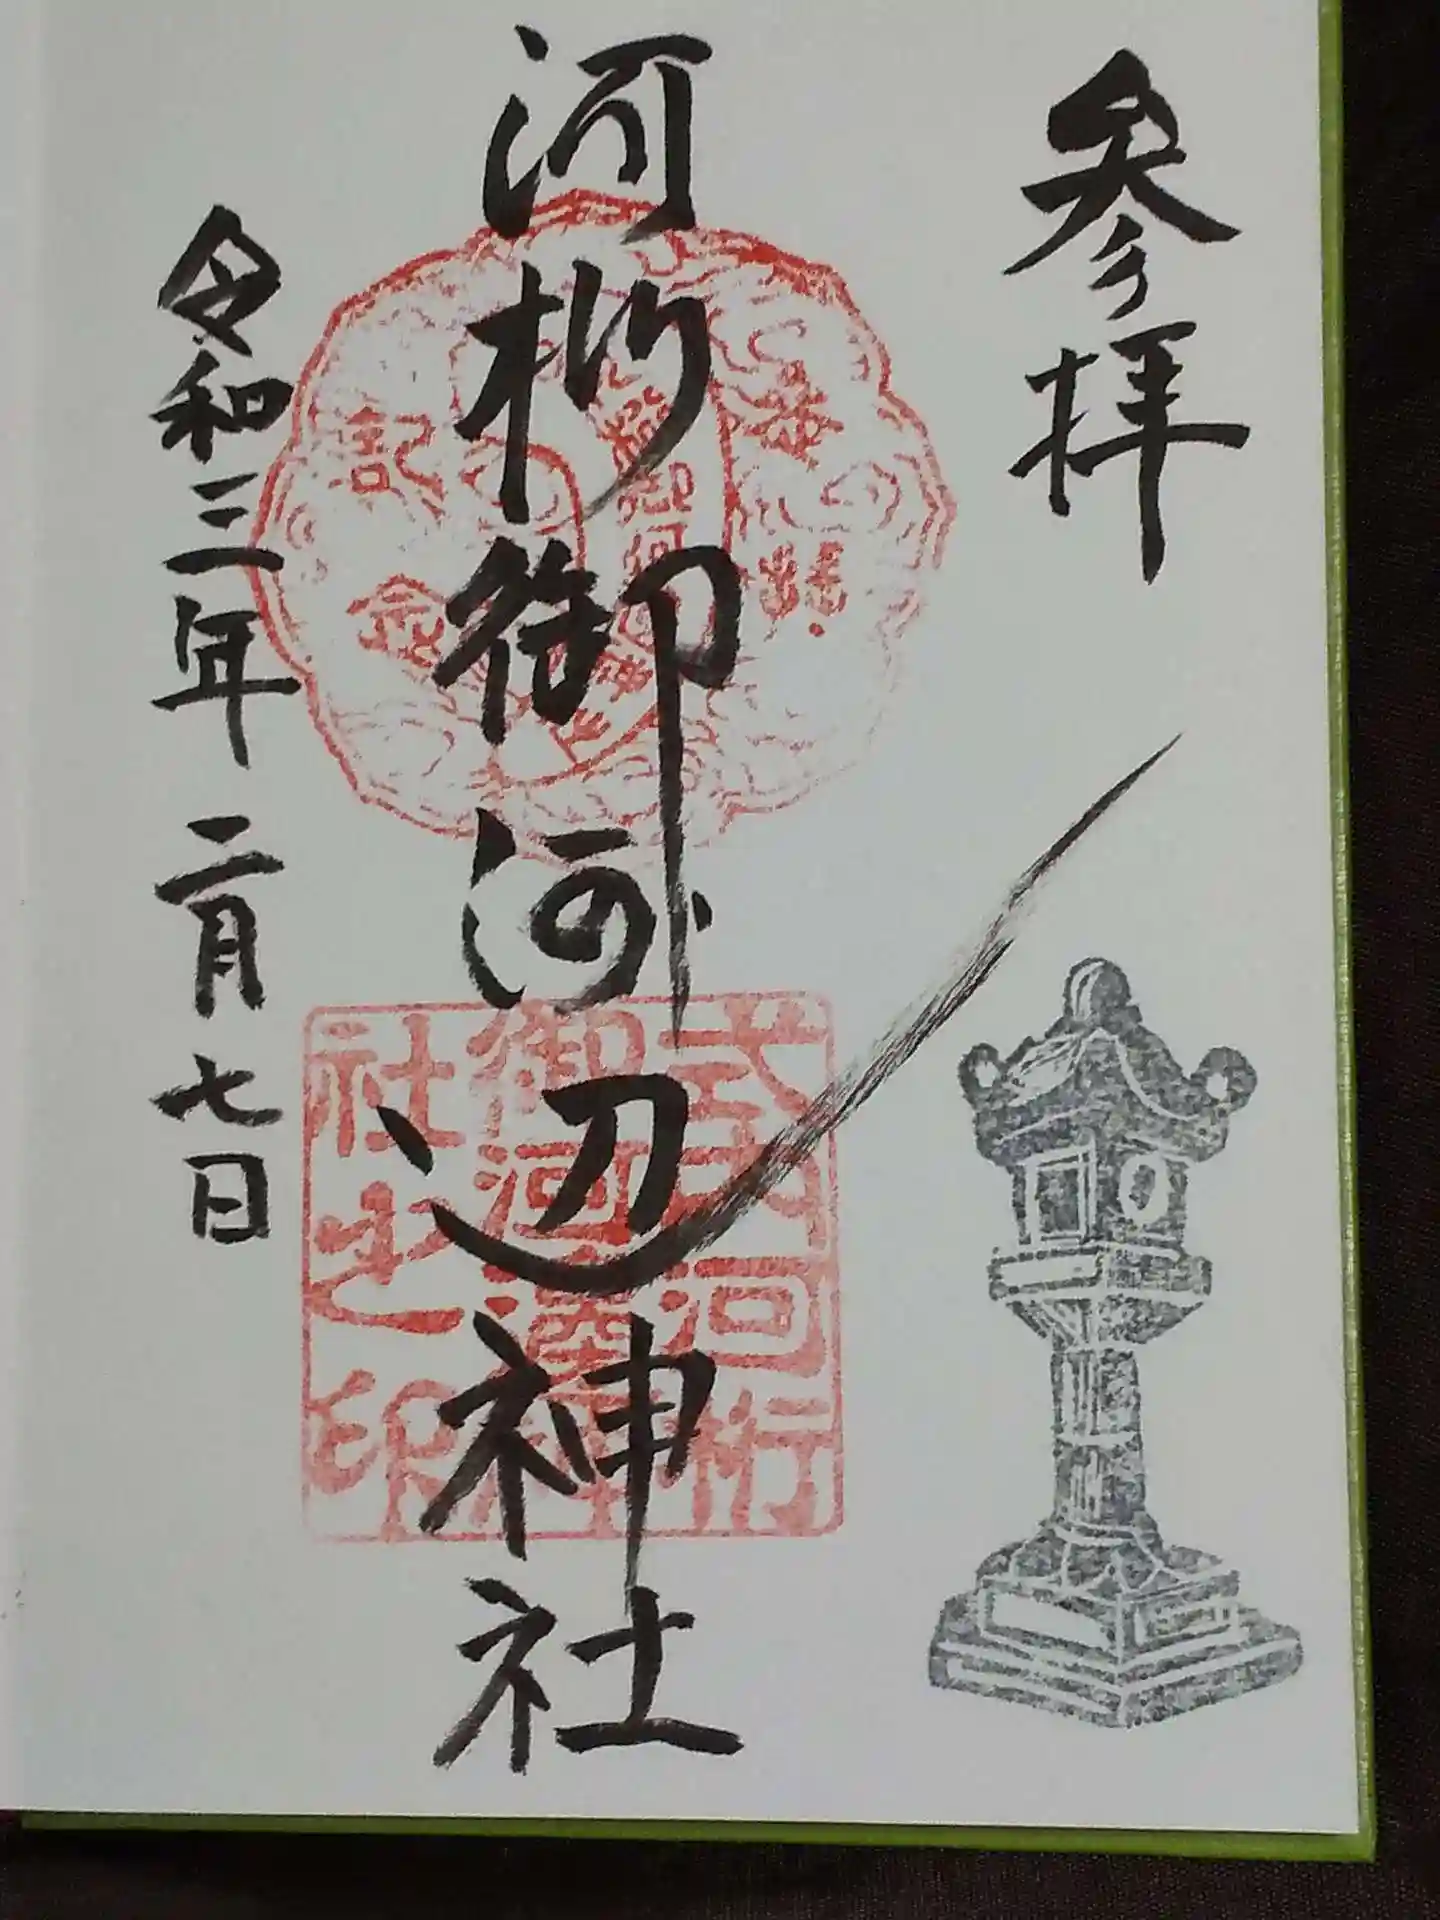 参拝
河桁御河辺神社
令和三年二月七日
記念
式内河桁
御河邊神
社之印